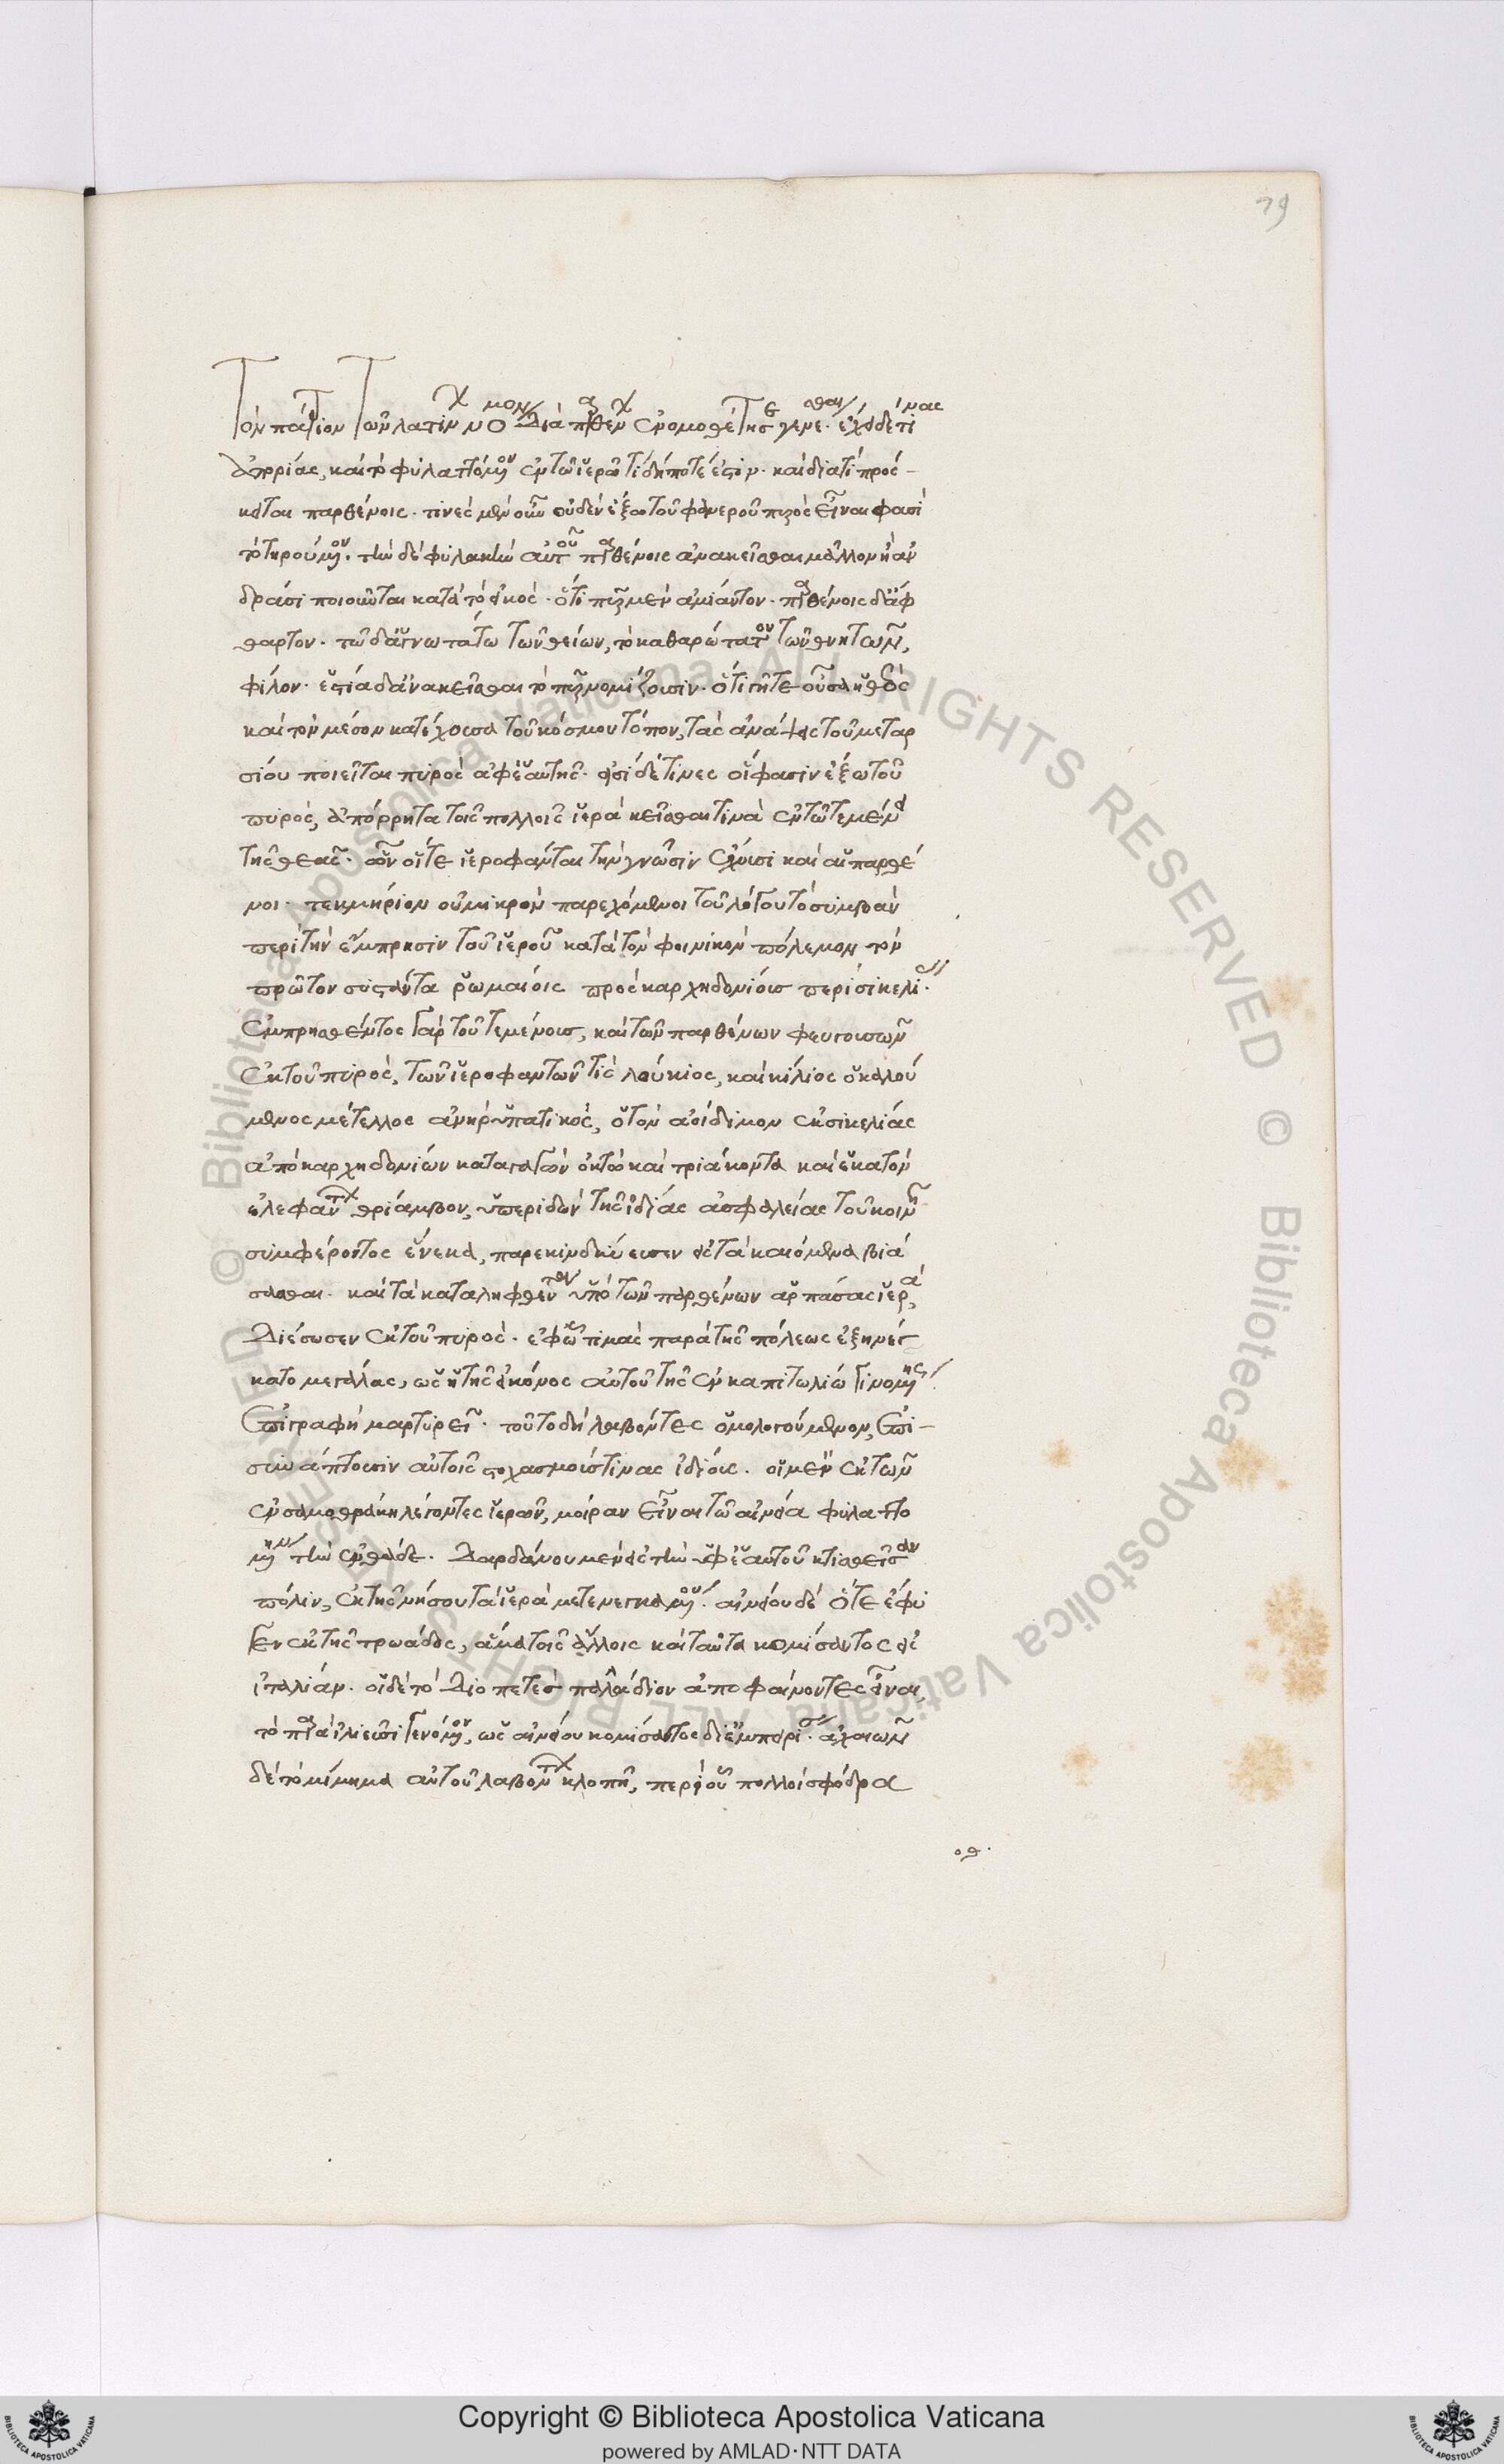 79
τὸν πάτριον τῶν λατίνων νόμον διὰ παρθένων ἐνομοθέτησε γενέσθαι. ἔχει δέ τινας
ἀπορίας, καὶ τὸ φυλαττόμενον ἐν τῶ ἱερῶ τί δήποτέ ἐστιν. καὶ διατί πρόσ-
κειται παρθένοις. τινὲς μὲν οὖν οὐδὲν ἔξω τοῦ φανεροῦ πυρὸς εἶναι φασὶ
τὸ τηρούμενον. τὴν δὲ φυλακὴν αὐτοῦ παρθένοις ἀνακεῖσθαι μᾶλλον ἢ ἀν
δράσι ποιοῦνται κατὰ τὸ εἰκός. ὅτι πῦρ μὲν ἀμίαντον. παρθένος δ' ἄφ
θαρτον. τῶ δ' ἁγνωτάτω τῶν θείων, τὸ καθαρώτατον τῶν θνητῶν,
φίλον. ἑστία δ' ἀνακεῖσθαι τὸ πῦρ νομίζουσιν. ὅτι γῆ τε οὖσα ἡ θεὸς
καὶ τὸν μέσον κατέχουσα τοῦ κόσμου τόπον, τὰς ἀνάψεις τοῦ μεταρ
σίου ποιεῖται πυρὸς ἀφ' ἑαυτῆς. εἰσὶ δέ τινες οἵ φασιν ἔξω τοῦ
πυρὸς, ἀπόρρητα τοῖς πολλοῖς ἱερὰ κεῖσθαι τινὰ ἐν τῶ τεμένει
τῆς θεᾶς. ὧν οἵ τε ἱεροφάνται τὴν γνῶσιν ἔχουσι καὶ αἱ παρθέ
νοι. τεκμήριον οὐ μικρὸν παρεχόμενοι τοῦ λόγου τὸ συμβὰν
περὶ τὴν ἔμπρησιν τοῦ ἱεροῦ κατὰ τὸν φοινικὸν πόλεμον τὸν
πρῶτον συστάντα ῥωμαίοις πρὸς καρχηδονίους περὶ σικελίας.
ἐμπρησθέντος γὰρ τοῦ τεμένους, καὶ τῶν παρθένων φευγουσῶν
ἐκ τοῦ πυρὸς, τῶν ἱεροφαντῶν τὶς λούκιος, καικίλιος ὁ καλού
μενος μέτελλος ἀνὴρ ὑπατικὸς, ὁ τὸν ἀοίδιμον ἐκ σικελίας
ἀπὸ καρχηδονίων καταγαγὼν ὀκτὼ καὶ τριάκοντα καὶ ἑκατὸν
ἐλεφάντων θρίαμβον, ὑπεριδὼν τῆς ἰδίας ἀσφαλείας τοῦ κοινῆ
συμφέροντος ἕνεκα, παρεκινδύνευσεν εἰς τὰ καιόμενα βιά
σασθαι. καὶ τὰ καταληφθέντα ὑπὸ τῶν παρθένων ἁρπάσας ἱερὰ,
διέσωσεν ἐκ τοῦ πυρός. ἐφ' ὧ τιμὰς παρὰ τῆς πόλεως ἐξηνέγ
κατο μεγάλας, ὡς ἡ τῆς εἰκόνος αὐτοῦ τῆς ἐν καπιτωλίω γινομένης
ἐπιγραφὴ μαρτυρεῖ. τοῦτο δὴ λαβόντες ὁμολογούμενον, ἐπι-
συνάπτουσιν αὐτοῖς στοχασμούς τινας ἰδίους. οἱ μὲν ἐκ τῶν
ἐν σαμοθράκη λέγοντες ἱερῶν, μοῖραν εἶναι τῶ αἰνεία φυλαττο
μένην τὴν ἐνθάδε. δαρδάνου μὲν εἰς τὴν ὑφ' ἑαυτοῦ κτισθεῖσαν
πόλιν, ἐκ τῆς νήσου τὰ ἱερὰ μετενεγκαμένου. αἰνείου δὲ ὅτε ἔφυ
γεν ἐκ τῆς τρωάδος, ἅμα τοῖς ἄλλοις καὶ ταῦτα κομίσαντος εἰς
ἰταλίαν. οἱ δὲ τὸ διοπετὲς παλλάδιον ἀποφαίνοντες εἶναι,
τὸ παρὰ ἰλιεῦσι γενόμενον, ὡς αἰνείου κομίσαντος δι' ἐμπειρίας. ἀχαιῶν
δὲ τὸ μίμημα αὐτοῦ λαβόντων κλοπῆ, περὶ οὗ πολλοὶ σφόδρα
οθ.
Copyright © Biblioteca Apostolica Vaticana
powered by AMLAD·NTT DATA